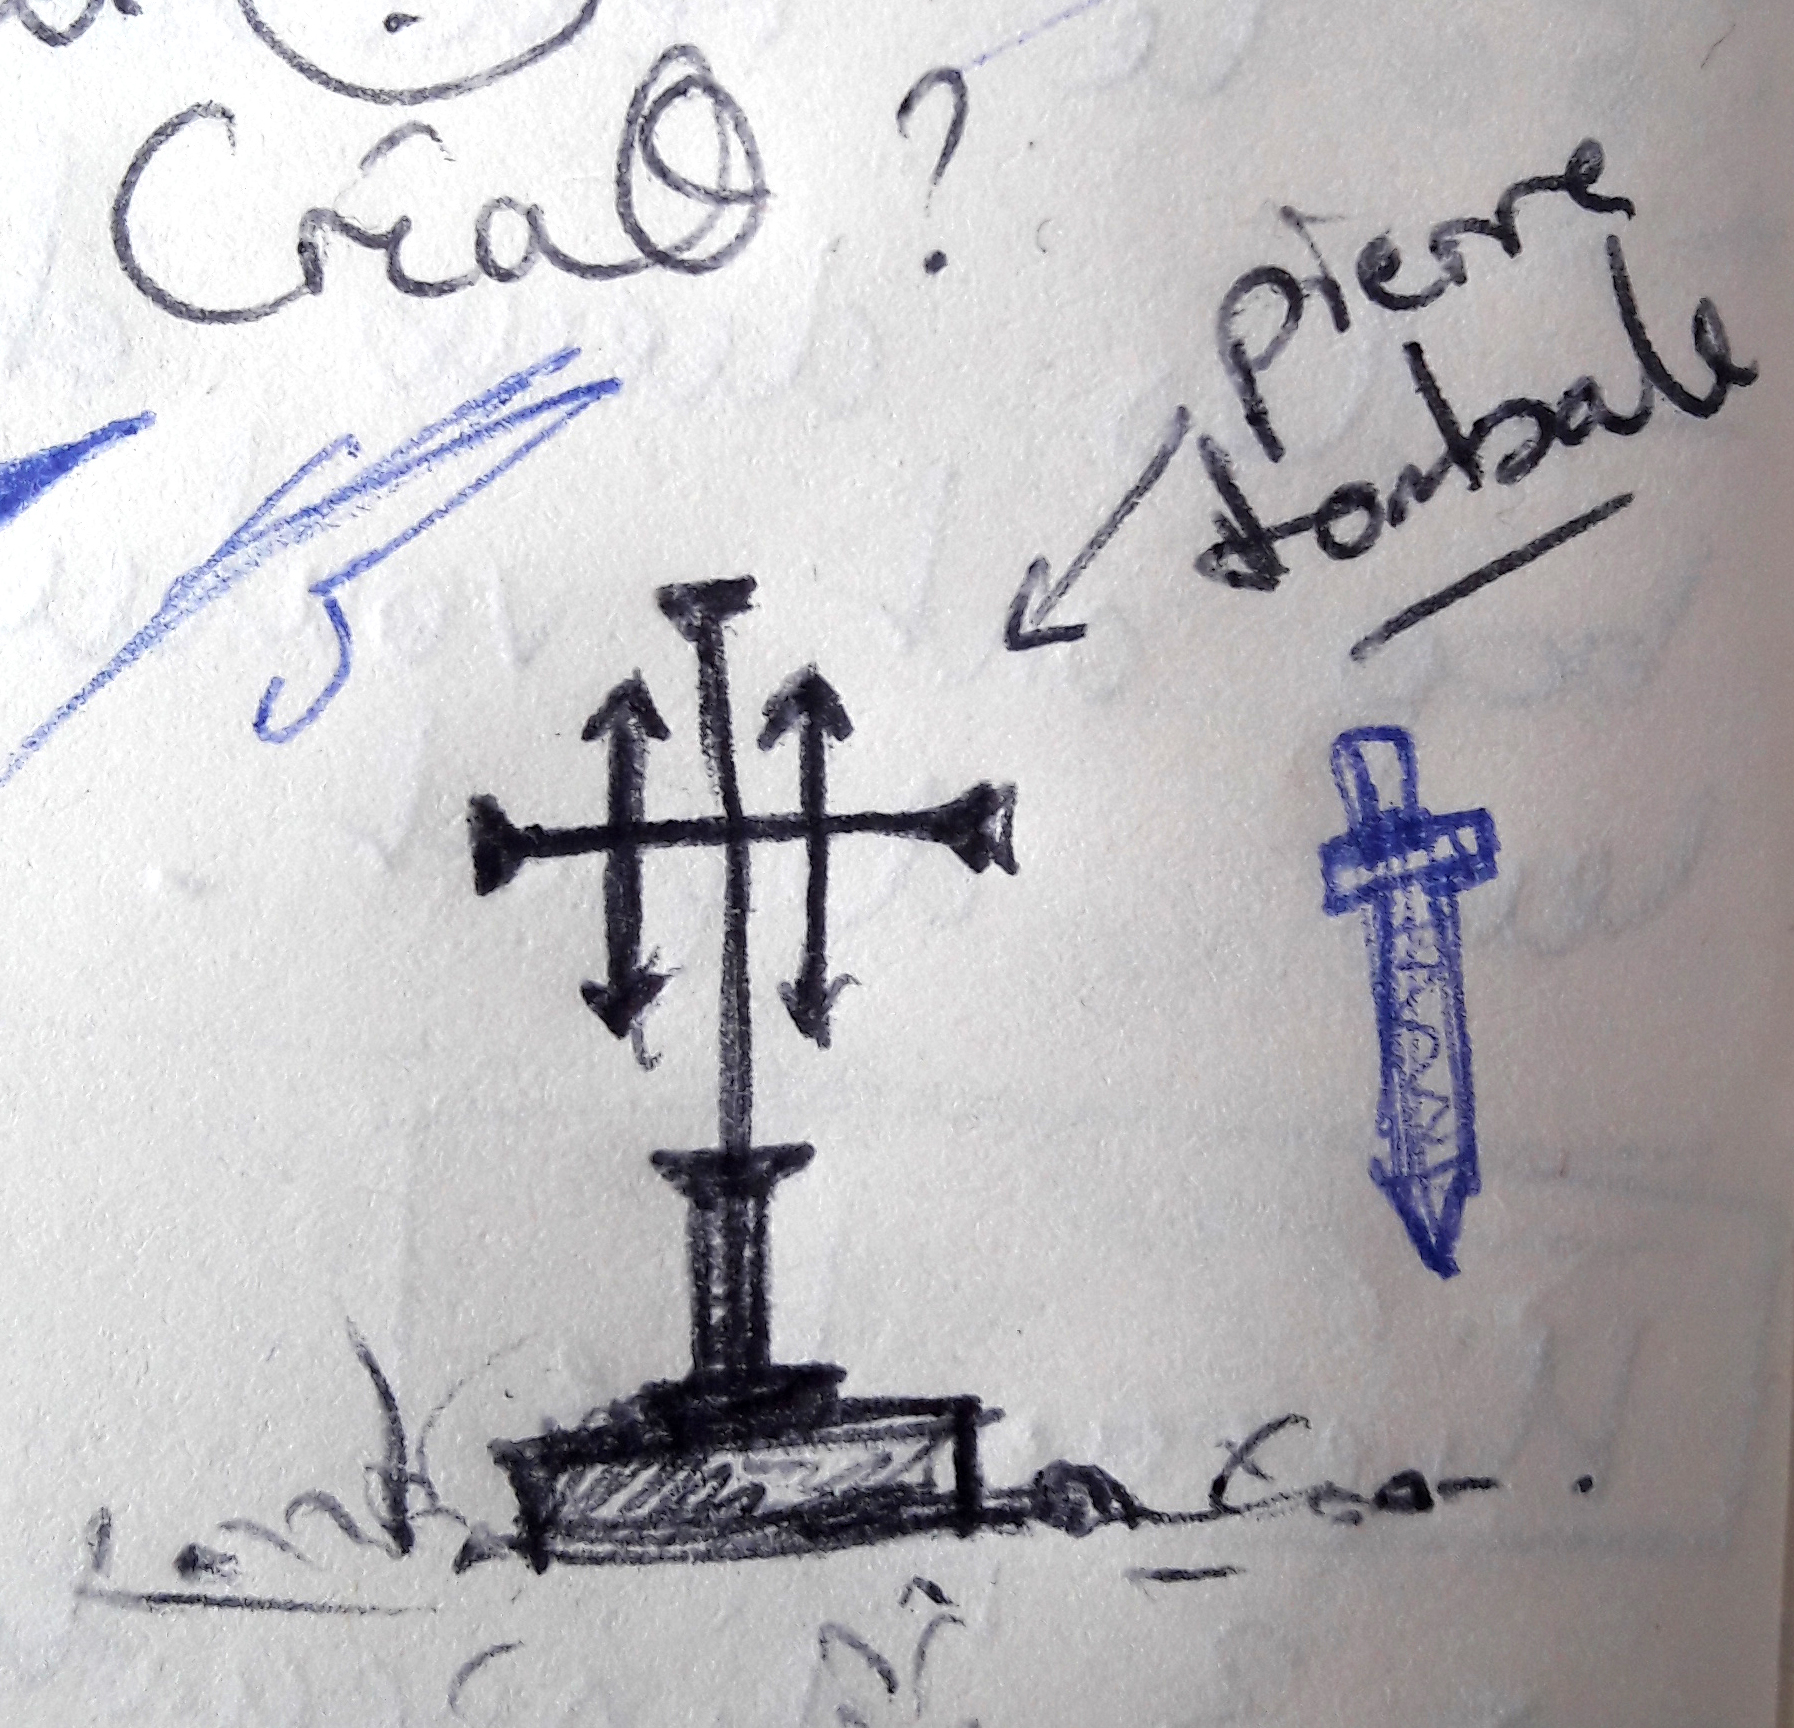 Créa ?
pierre
tombale